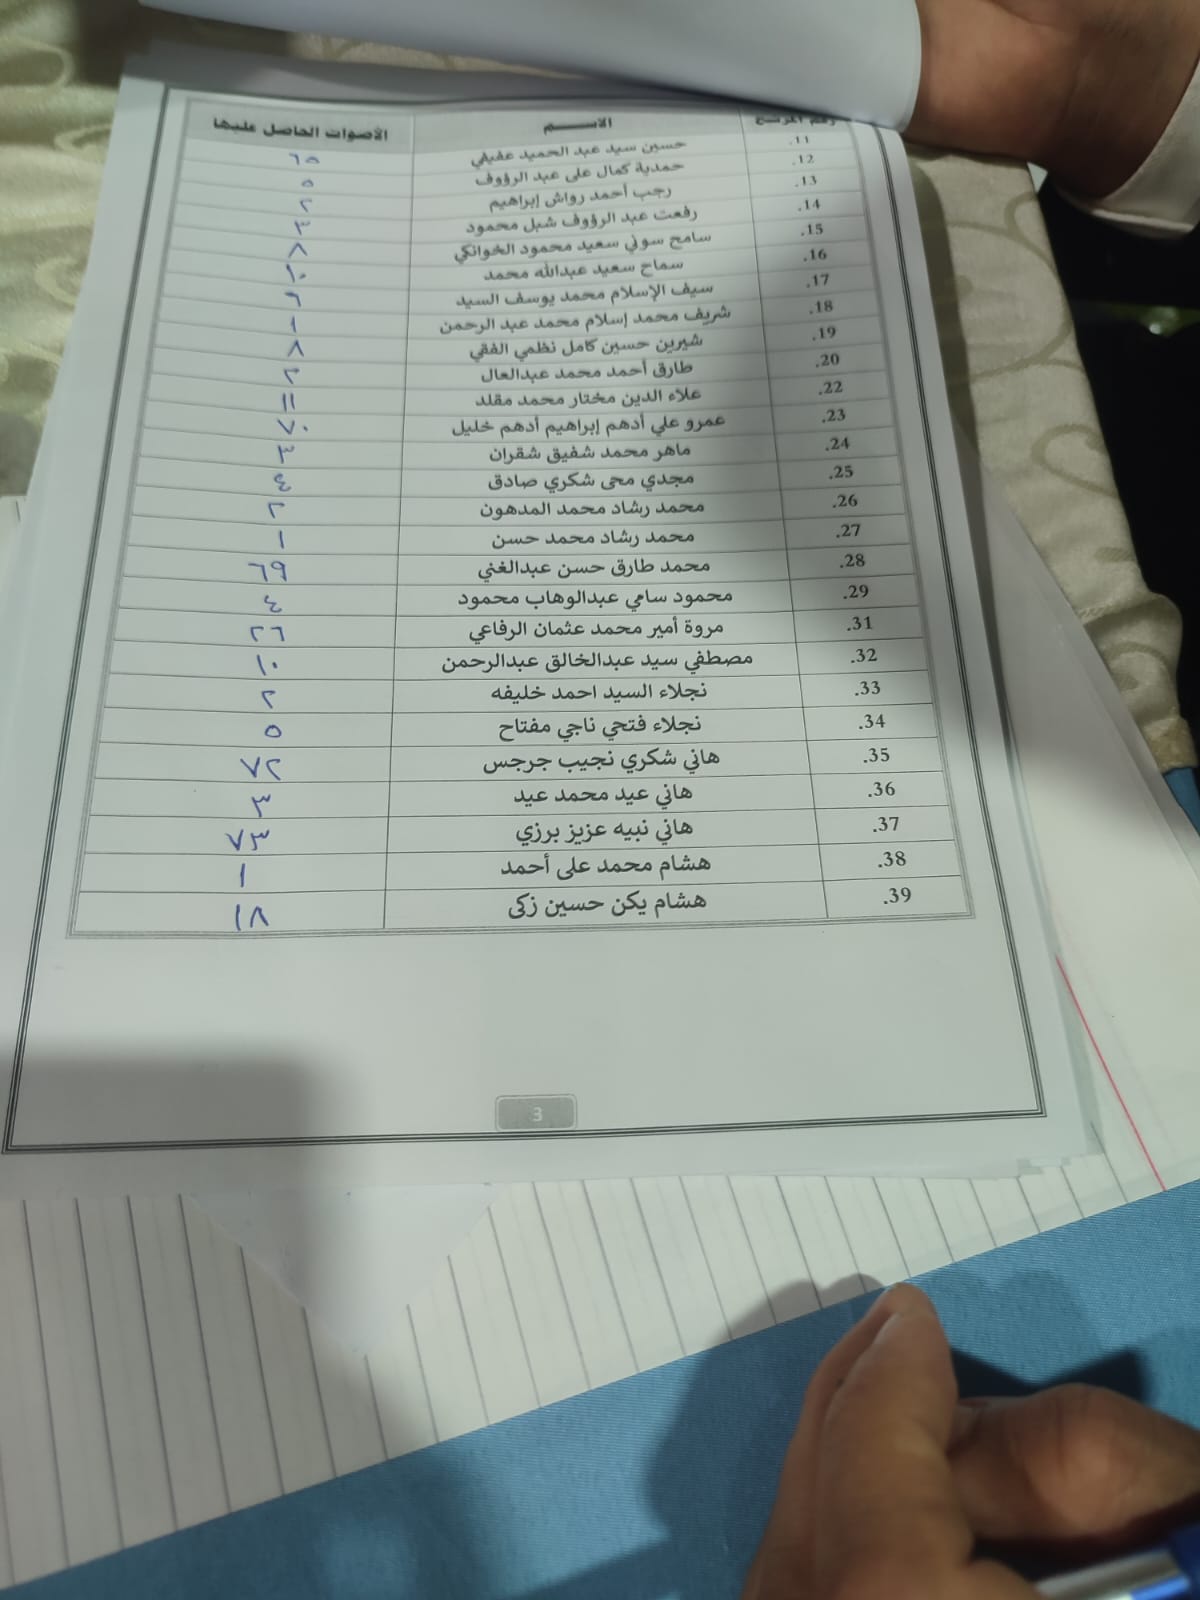 رقم المرشح الاســـــم الأصوات الحاصل عليها
11. حسين سيد عبد الحميد عفيفي ٦٥
12. حمدية كمال على عبد الرؤوف ٥
13. رجب أحمد رواش إبراهيم ٢
14. رفعت عبد الرؤوف شبل محمود ٣
15. سامح سوني سعيد محمود الخوانكي ٨
16. سماح سعيد عبدالله محمد ١٠
17. سيف الإسلام محمد يوسف السيد ٦
18. شريف محمد إسلام محمد عبد الرحمن ١
19. شيرين حسين كامل نظمي الفقي ٨
20. طارق أحمد محمد عبدالعال ٢
22. علاء الدين مختار محمد مقلد ١١
23. عمرو علي أدهم إبراهيم أدهم خليل ٧٠
24. ماهر محمد شفيق شقران ٣
25. مجدي محى شكري صادق ٤
26. محمد رشاد محمد المدهون ٢
27. محمد رشاد محمد حسن ١
28. محمد طارق حسن عبدالغني ٦٩
29. محمود سامي عبدالوهاب محمود ٤
31. مروة أمير محمد عثمان الرفاعي ٢٦
32. مصطفي سيد عبدالخالق عبدالرحمن ١٠
33. نجلاء السيد احمد خليفه ٢
34. نجلاء فتحي ناجي مفتاح ٥
35. هاني شكري نجيب جرجس ٧٢
36. هاني عيد محمد عيد ٣
37. هاني نبيه عزيز برزي ٧٣
38. هشام محمد على أحمد ١
39. هشام يكن حسين زكى ١٨
3